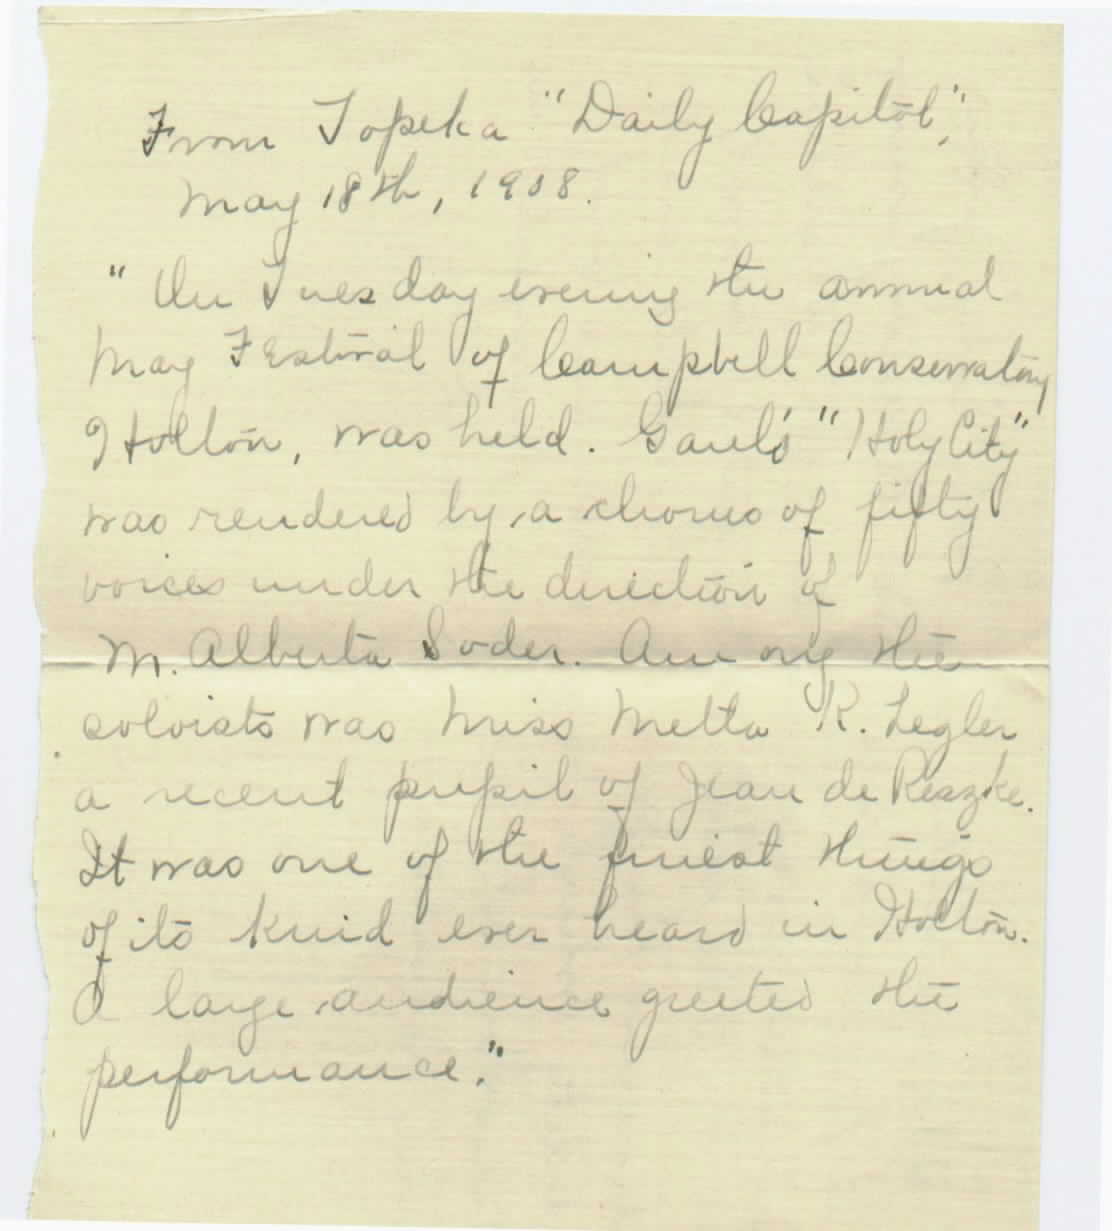 From Topeka "Daily Capitol",
May 18th, 1908.
"On Tuesday evening the annual
May Festival of Campbell Conservatory
Holton, was held. Gaul's "Holy City"
was rendered by a chorus of fifty
voices under the direction of
M. Alberta Soder. Among the
soloists was Miss Metta K. Legler
a recent pupil of Jean de Reszke.
It was one of the finest things
of its kind ever heard in Holton.
A large audience greeted the
performance."